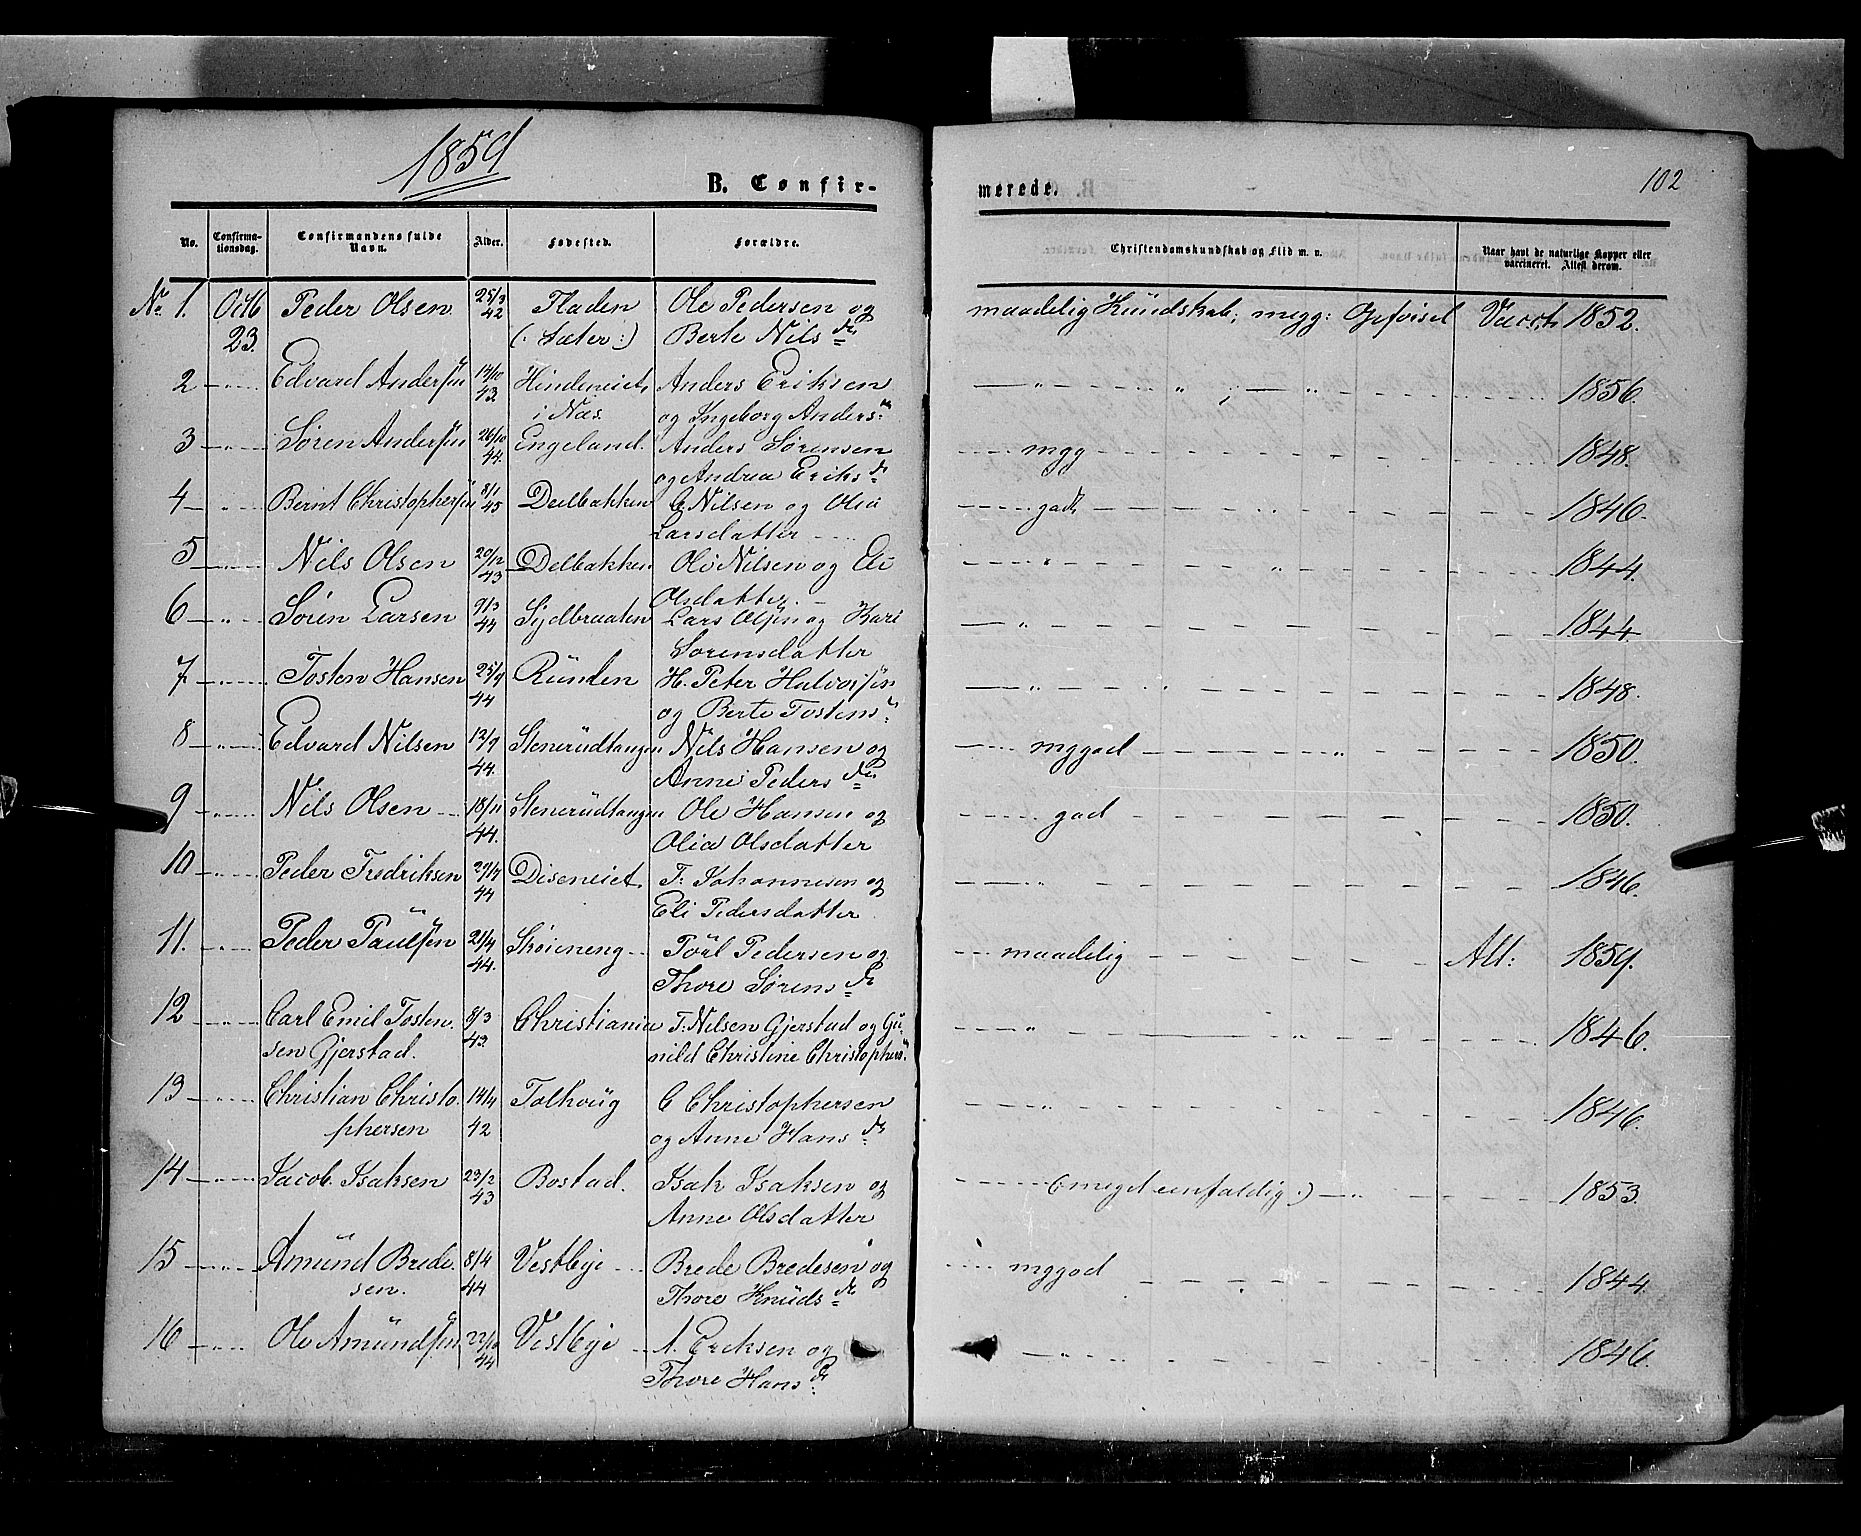 1859
B. Confir-
merede.
102
No. Confirma-tionsdag. Confirmandens fulde Navn. Alder. Fødested. Forældre. Christendomskundskab og Flid m. v. Naar havt de naturlige Kopper eller vaccineret. Attest derom.
No. 1. Octb 23. Peder Olsen 25/3 42 Fladen Ole Pedersen og maadelig Kundskab; megg: Vacct. 1852.
(: Sæter :) Berte Nils dr
2 Edvard Andersen 14/10 43. Hindeneiet Anders Eriksen 1856.
i Næs. og Ingeborg Anders:
3 Søren Andersen 26/10 44. Engeland. Anders Sørensen mgg 1848.
og Andrea Eriks dr
4 Bernt Christophersen 8/1 45 Delbakken C. Nilsen og Olia god 1846.
Larsdatter
5 Nils Olsen 20/12 43 Delbakken Ole Nilsen og Eli 1844.
Olsdatter.
6 Søren Larsen 9/3 44 Sydbraaten Lars Olsen og Kari 1844
Sorensdatter
7 Tosten Hansen 25/9 44 Runden H. Peter Halvorsen 1848.
og Berte Tostens:
8 Edvard Nilsen 12/9 44. Stenerudtangen Nils Hansen og mggod 1850.
Anne Peders dr
9 Nils Olsen 18/11 44. Stenerudtangen Ole Hansen og god 1850.
Olia Olsdatter
10 Peder Fredriksen 44 Diseneiet F: Johannesen og 1846.
Eli Pedersdatter
11. Peder Paulsen 21/4 44. Skøieneng Poul Pedersen og maadelig Att: 1859.
Thore Sørens dr
12 Carl Emil Tosten- 8/3 43. Christiania T: Nilsen Gjerstad og Gu- 1846.
sen Gjerstad. nild Christine Christophers:
13 Christian Christo- 14/4 42 Tolhoug C Christophersen 1846.
phersen og Anne Hans dr
14 Jacob Isaksen 23/2 43 Bostad. Isak Isaksen og (meget eenfoldig :) 1853.
Anne Olsdatter
15 Amund Brede- 8/4 44 Vestbye Brede Bredesen og mggod 1844.
sen. Thore Knuds dr
16 Ole Amundsen 22/10 44 Vestbye A. Eriksen og 1846.
Thore Hans dr